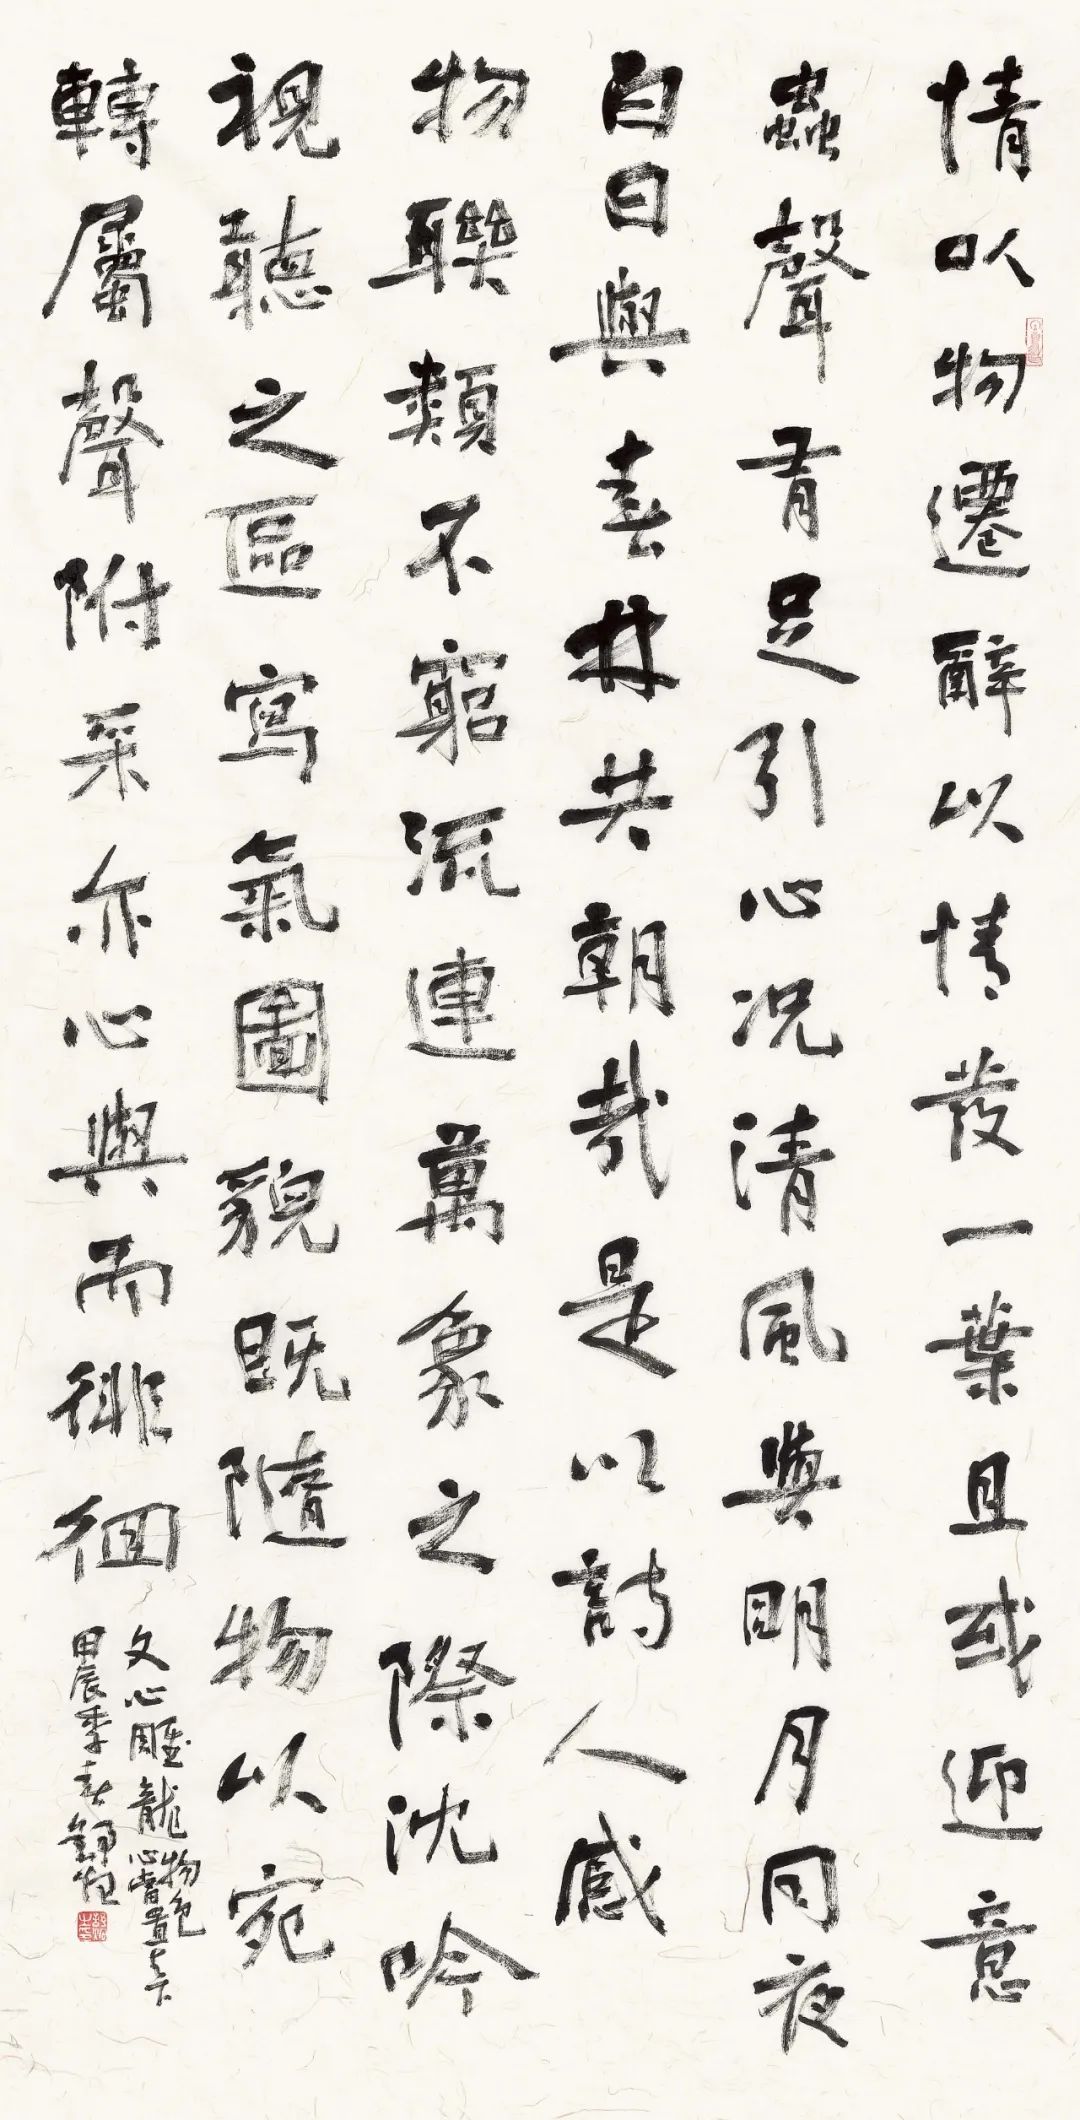 情以物遷辭以情發一葉且或迎意
蟲聲有足引心况清風與明月同夜
白日與春林共朝哉是以詩人感
物聯類不窮流連萬象之際沈吟
視聽之區寫氣圖貌既隨物以宛
轉屬聲附采亦心與而徘徊
文心雕龍物色
甲辰季春